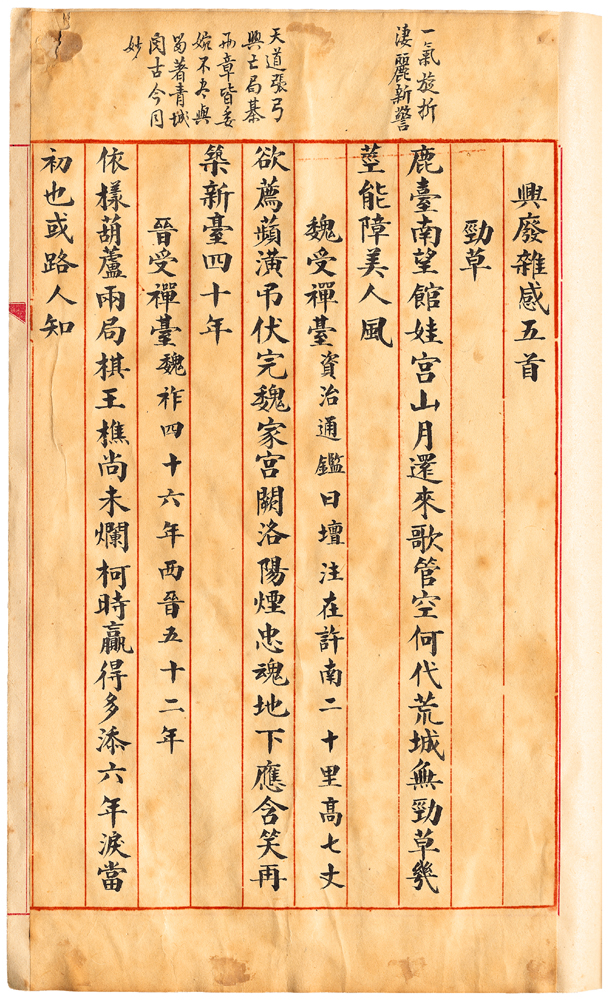 一氣旋折
淒麗新警
天道張弓
興亡局棊
兩章皆委
婉不盡與
蜀著青城
閔古今同
妙
興廢雜感五首
勁草
鹿臺南望館娃宮山月還來歌管空何代荒城無勁草幾
莖能障美人風
魏受禪臺資治通鑑曰壇注在許南二十里高七丈
欲薦蘋潢弔伏完魏家宮闕洛陽煙忠魂地下應含笑再
築新臺四十年
晉受禪臺魏祚四十六年西晉五十二年
依樣葫蘆兩局棋王樵尚未爛柯時贏得多添六年淚當
初也或路人知